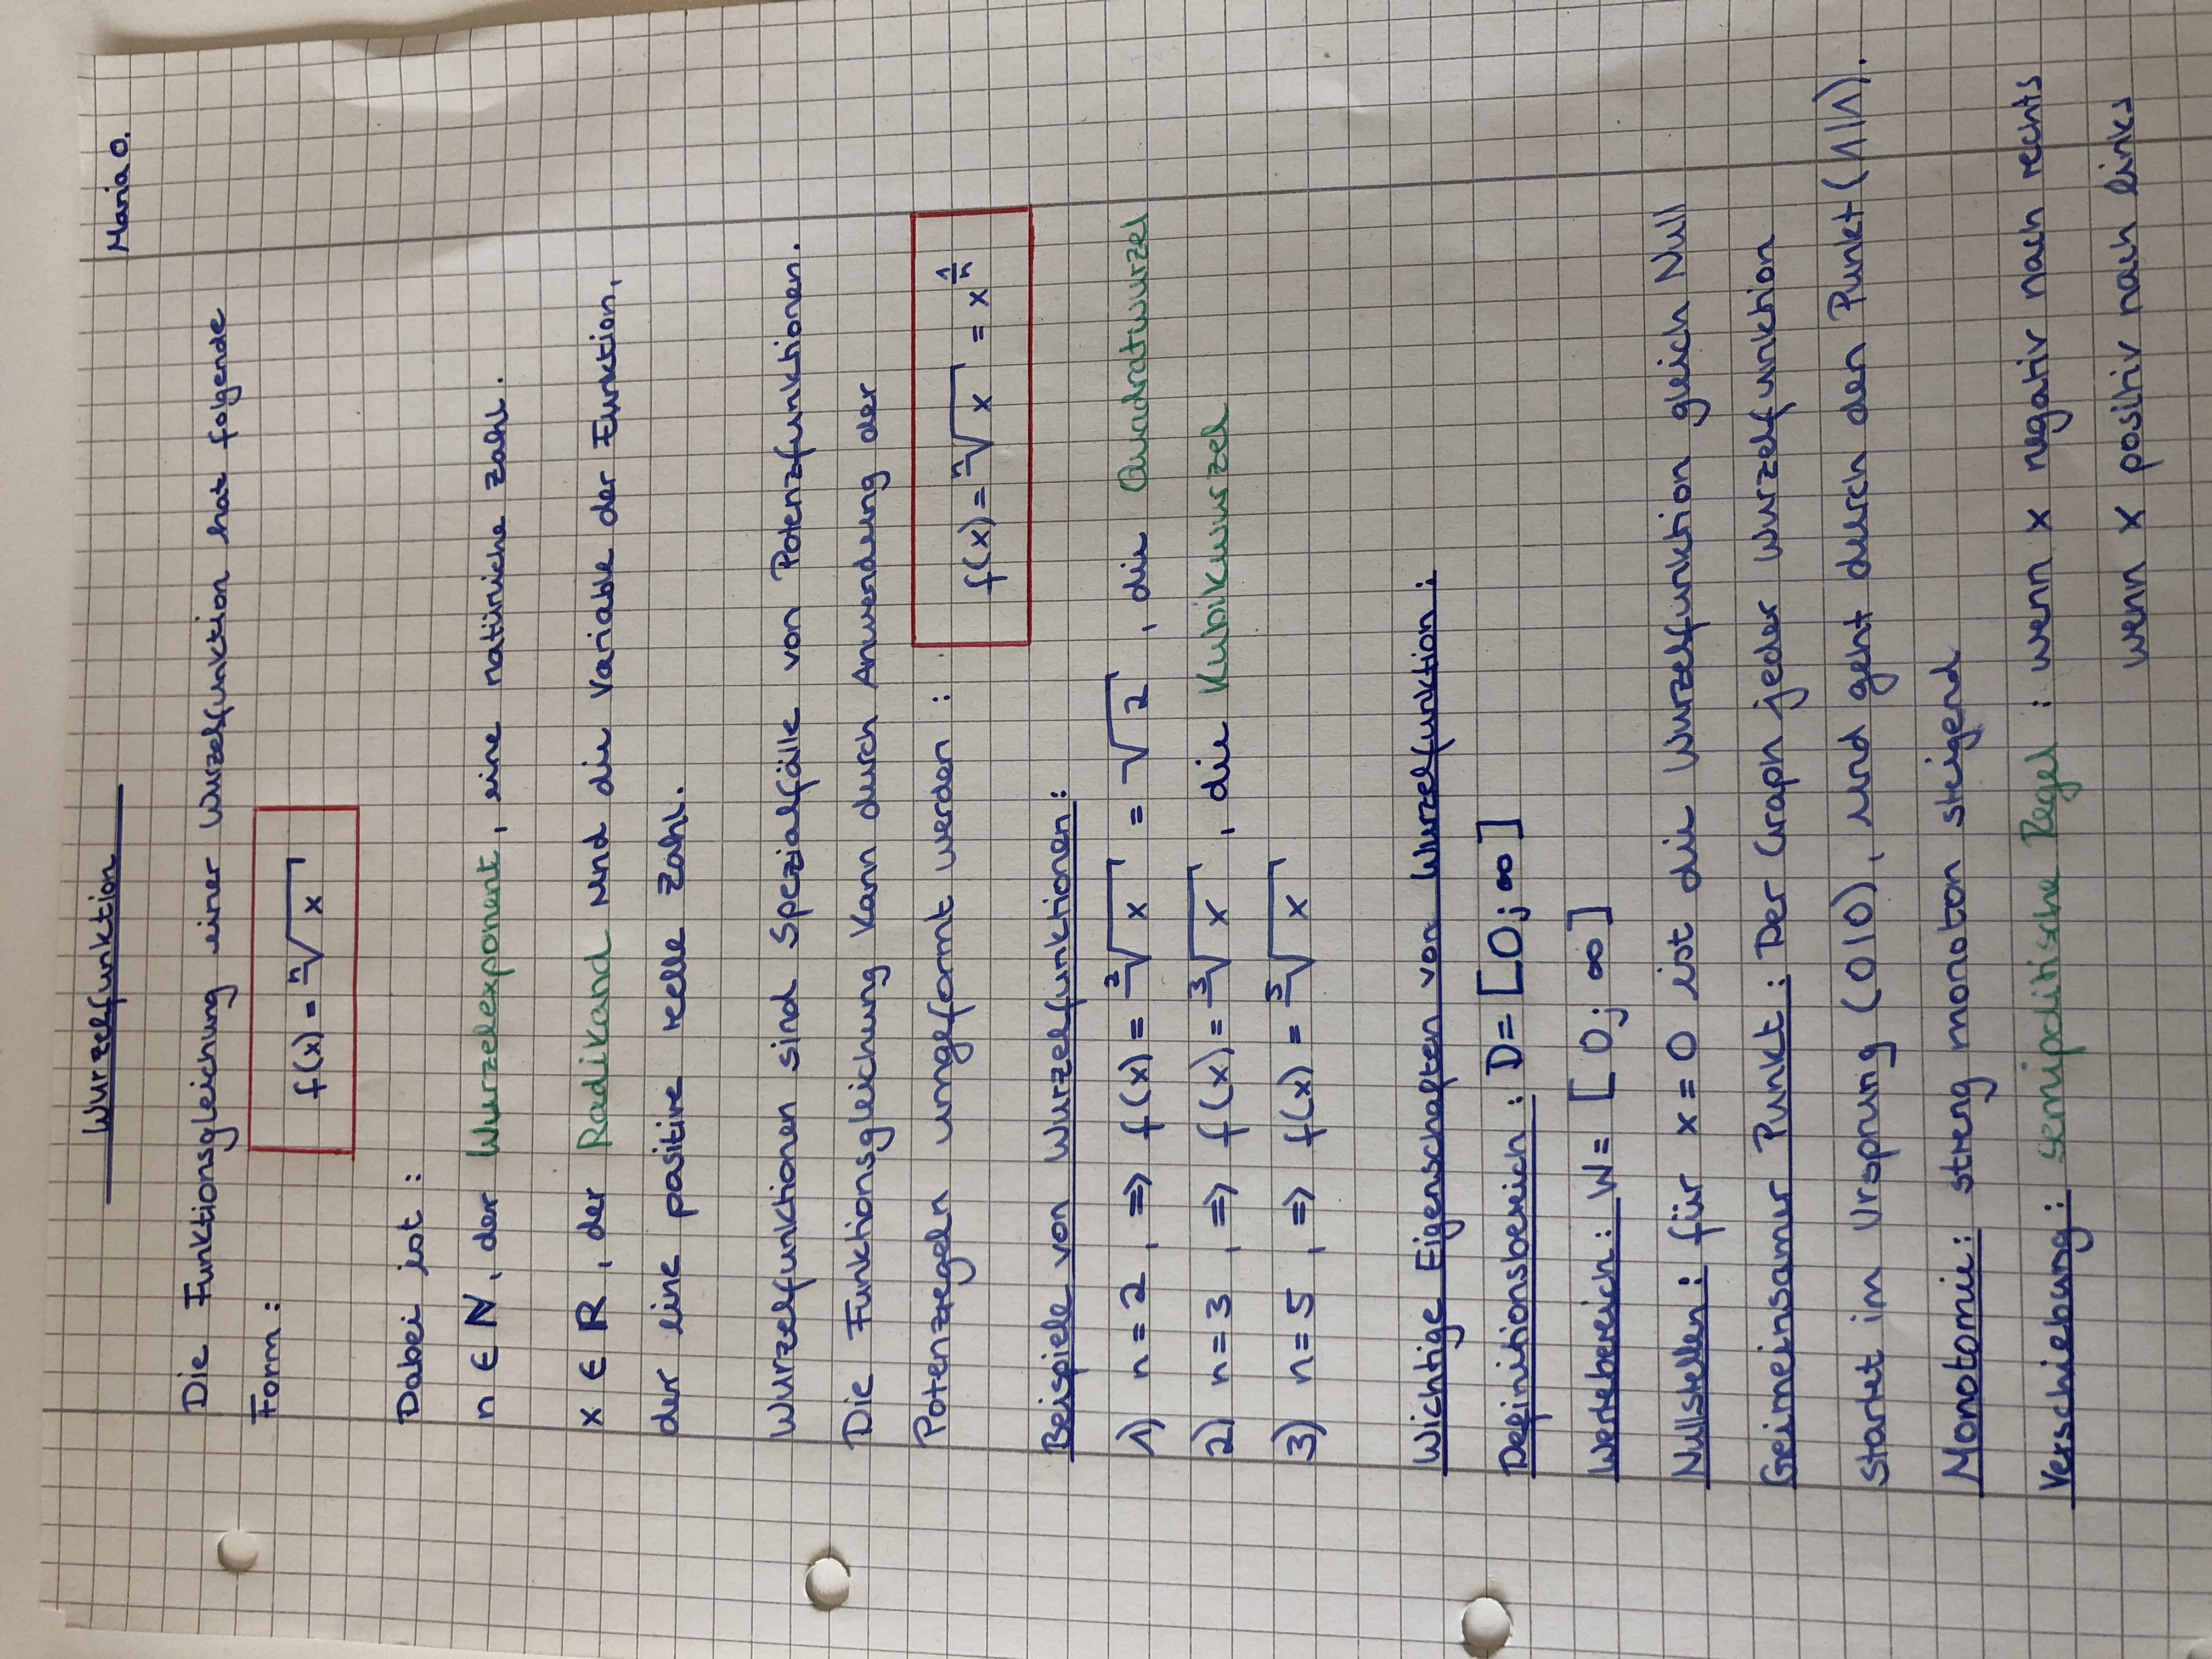 Maria O.
Wurzelfunktion
Die Funktionsgleichung einer Wurzelfunktion hat folgende
Form:
f(x) = ⁿ√x
Dabei ist:
n ∈ ℕ, der Wurzelexponent, eine natürliche Zahl.
x ∈ ℝ, der Radikand und die Variable der Funktion,
der eine positive reelle Zahl.
Wurzelfunktionen sind Spezialfälle von Potenzfunktionen.
Die Funktionsgleichung kann durch Anwendung der
Potenzregeln umgeformt werden: f(x) = ⁿ√x = x^(1/n)
Beispiele von Wurzelfunktionen:
1) n = 2, ⇒ f(x) = ²√x = √2, die Quadratwurzel
2) n = 3, ⇒ f(x) = ³√x, die Kubikwurzel
3) n = 5, ⇒ f(x) = ⁵√x
Wichtige Eigenschaften von Wurzelfunktion:
Definitionsbereich: D = [0; ∞]
Wertebereich: W = [0; ∞]
Nullstellen: für x = 0 ist die Wurzelfunktion gleich Null
Geimeinsamer Punkt: Der Graph jeder Wurzelfunktion
startet im Ursprung (0|0), und geht durch den Punkt (1|1).
Monotomie: streng monoton steigend
Verschiebung: semipolitische Regel: wenn x negativ nach rechts
wenn x positiv nach links